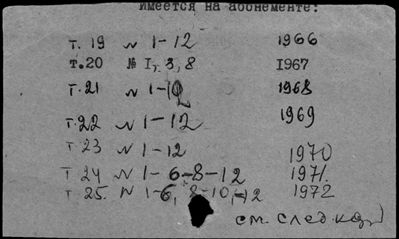 Имеется на абонементе:
т. 19 № 1-12 1966
т.20 № I, 3, 8 I967
т.21 № 1-12 1968
т.22 № 1-12 1969
т 23 № 1-12 1970
т 24 № 1-6-8-12 1971
т 25. № 1-6, 8-10, -12 1972
см. след. кар)